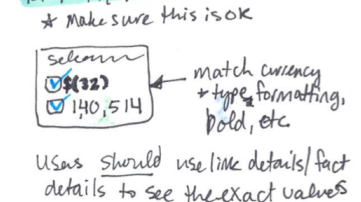 * Make sure this is ok
$(32)
140,514
match currency
+ type, formatting,
bold, etc.
Users should use line details/fact
details to see the exact values